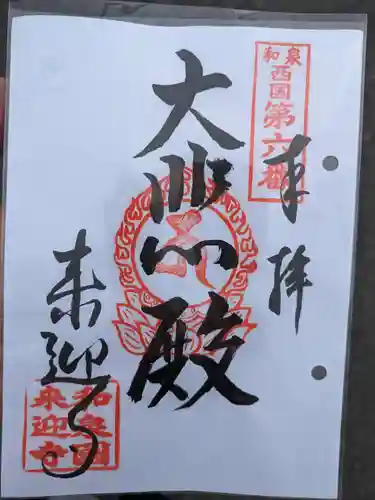 和泉
西国
第六番
奉拝
大悲殿
来迎寺
和泉国
来迎寺